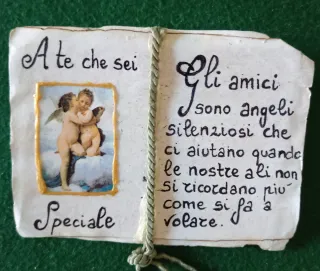 A te che sei
Speciale
Gli amici
sono angeli
silenziosi che
ci aiutano quando
le nostre ali non
si ricordano più
come si fa a
volare.